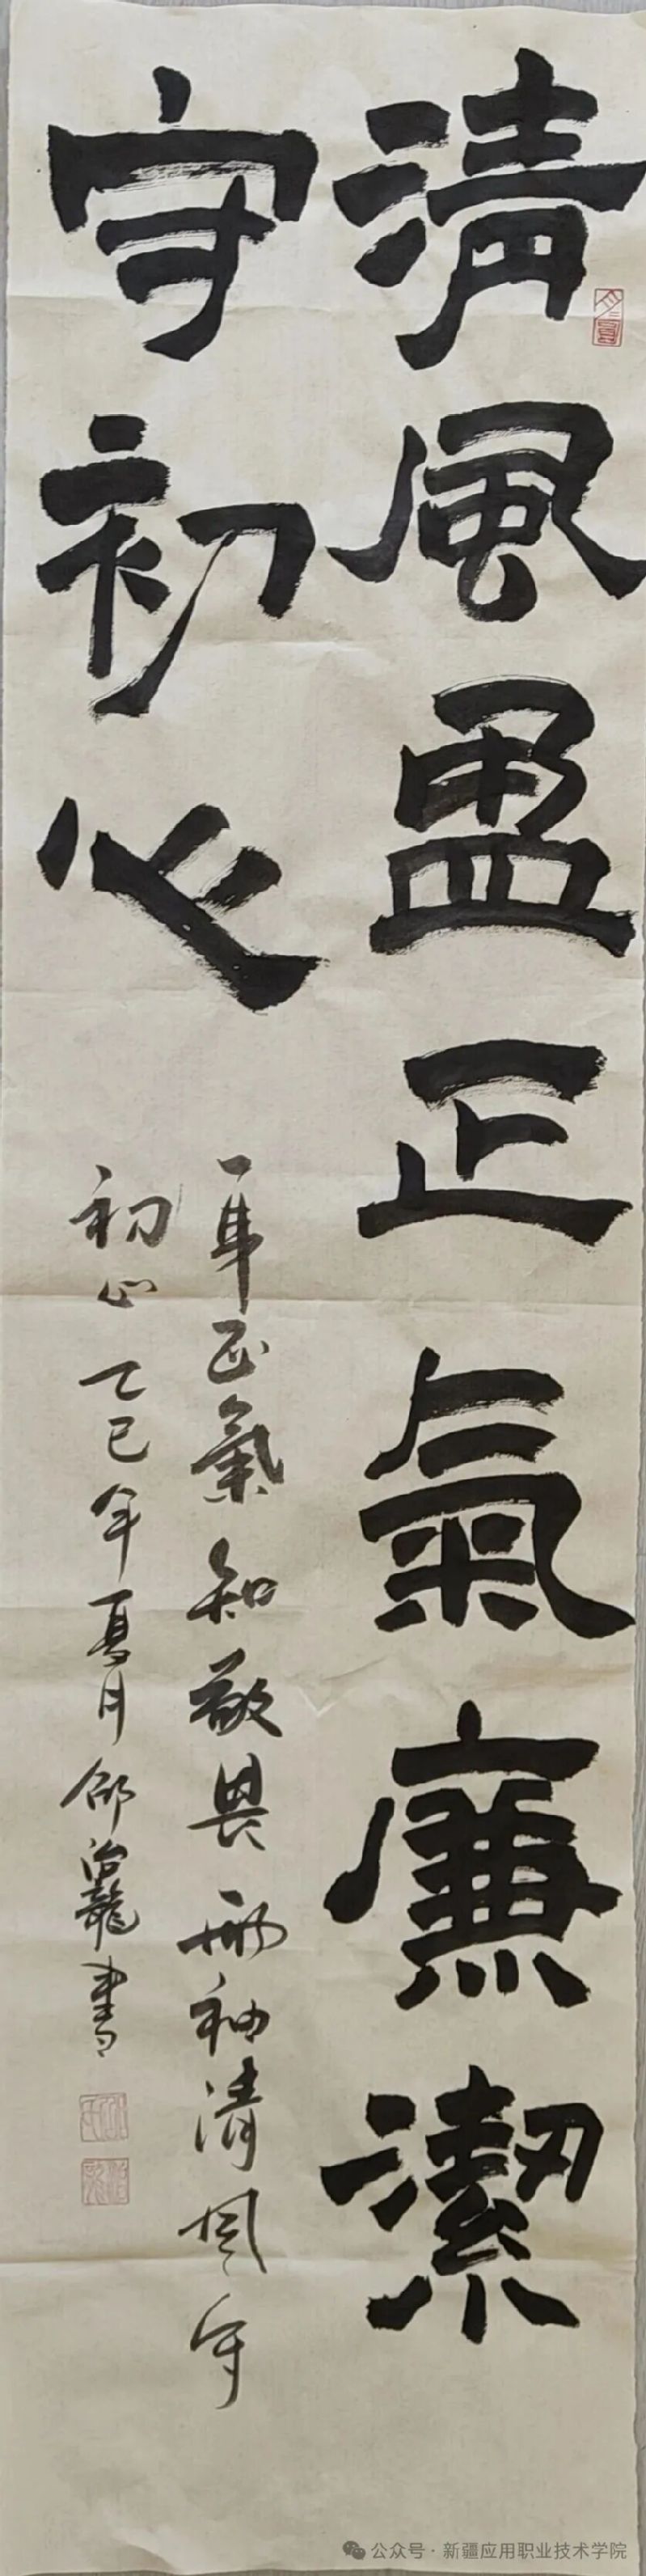 清風盈正氣廉潔
守初心
一身正氣知敬畏兩袖清風守
初心乙巳年夏月邰治龍書
公众号·新疆应用职业技术学院